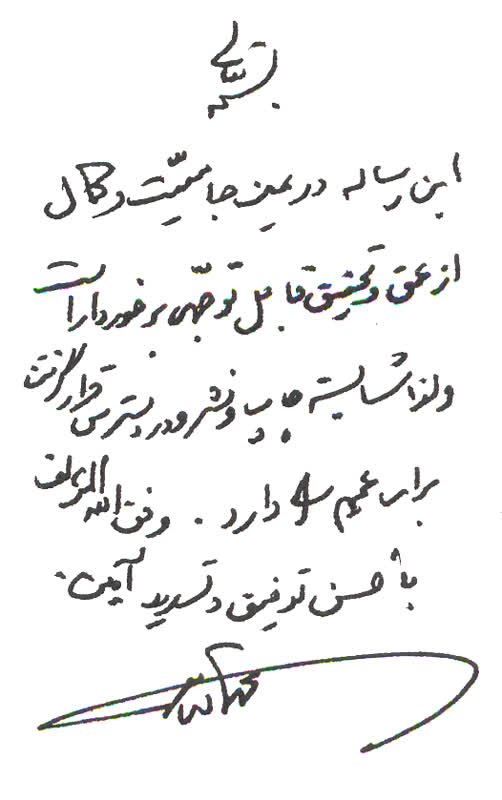 بسمه تعالی
این رساله در عین جامعیّت و کمال
از عمق و تحقیق قابل توجّهی برخوردار است
ولذا شایسته چاپ و نشر و در دسترس قرار گرفتن
برای عموم را دارد. وفق الله المؤلف
بأحسن توفیق و تسدید آمین.